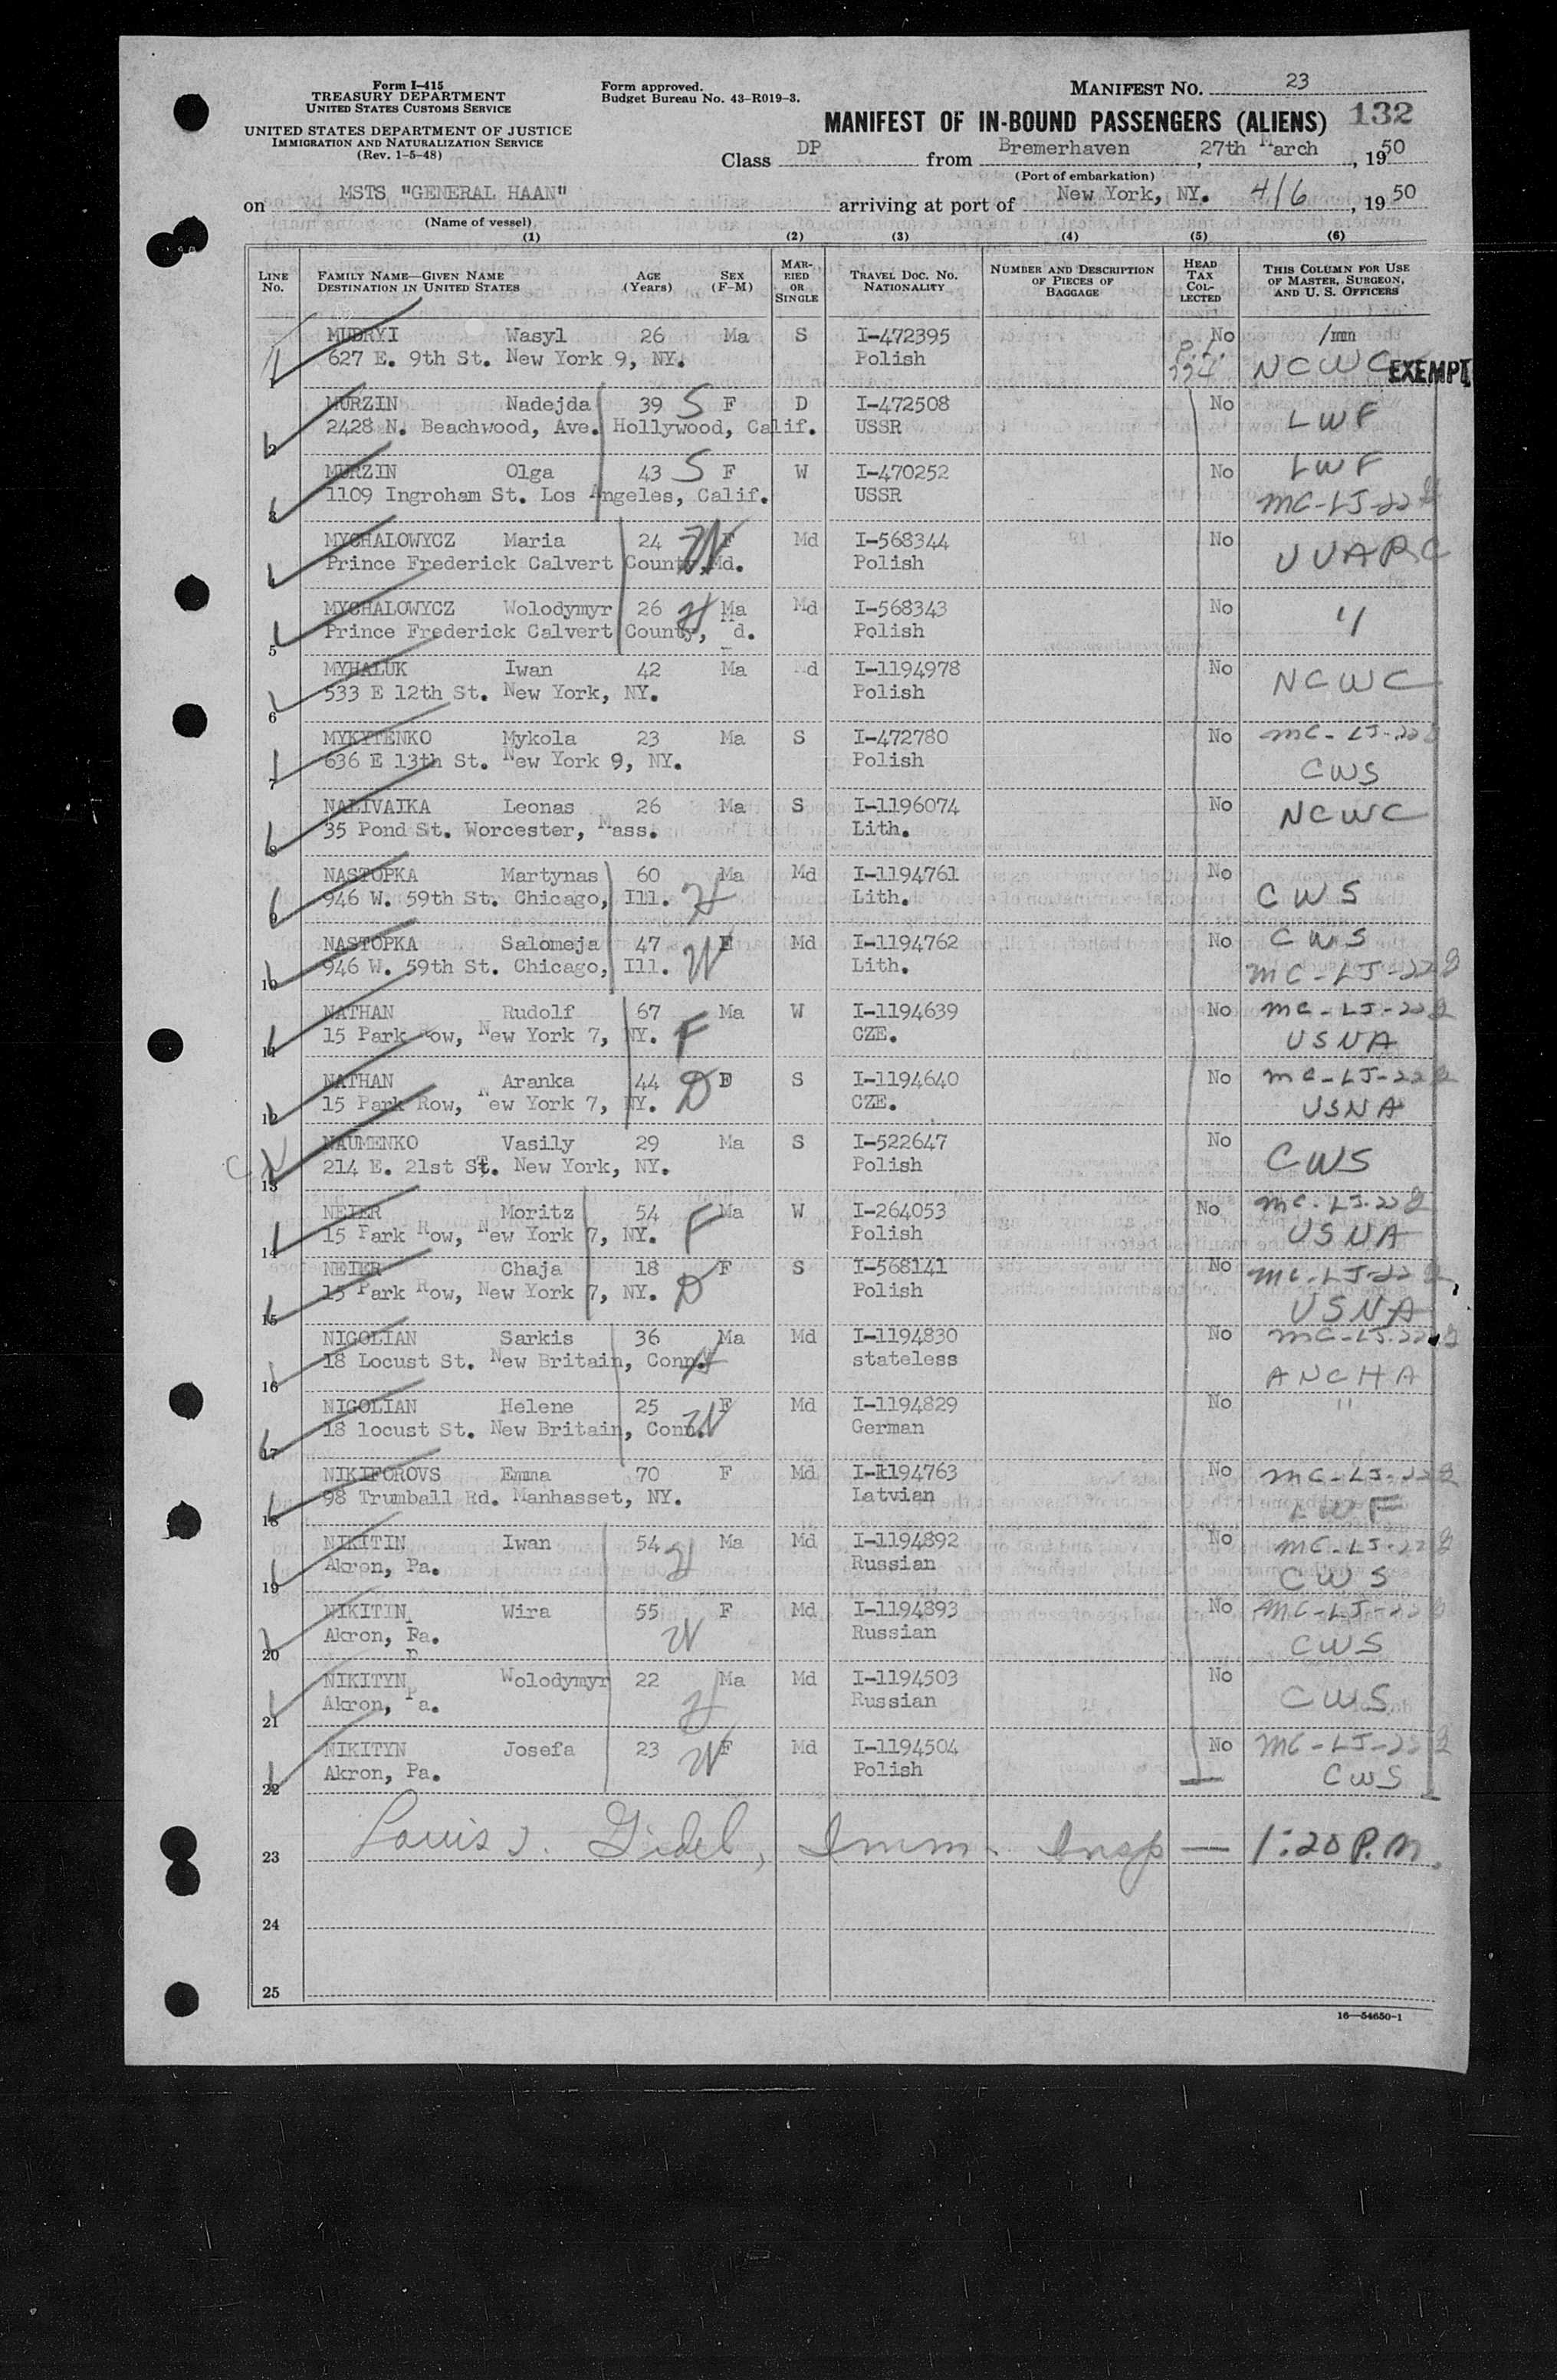 Form I-415
TREASURY DEPARTMENT
UNITED STATES CUSTOMS SERVICE
UNITED STATES DEPARTMENT OF JUSTICE
IMMIGRATION AND NATURALIZATION SERVICE
(Rev. 1-5-48)
Form approved.
Budget Bureau No. 43-R019-3.
MANIFEST No. 23
132
MANIFEST OF IN-BOUND PASSENGERS (ALIENS)
Class DP from Bremerhaven, 27th March, 1950
(Port of embarkation)
on MSTS "GENERAL HAAN" arriving at port of New York, NY. 4/6, 1950
(Name of vessel)
(1) (2) (3) (4) (5) (6)
LINE No. FAMILY NAME—GIVEN NAME DESTINATION IN UNITED STATES AGE (Years) SEX (F-M) MARRIED OR SINGLE TRAVEL DOC. No. NATIONALITY NUMBER AND DESCRIPTION OF PIECES OF BAGGAGE HEAD TAX COLLECTED THIS COLUMN FOR USE OF MASTER, SURGEON, AND U. S. OFFICERS
MUDRYI Wasyl 26 Ma S I-472395 No /mm
627 E. 9th St. New York 9, NY. Polish NCWC EXEMPT
2 MURZIN Nadejda 39 S F D I-472508 No LWF
2428 N. Beachwood, Ave. Hollywood, Calif. USSR
3 MURZIN Olga 43 S F W I-470252 No LWF
1109 Ingroham St. Los Angeles, Calif. USSR MC-LJ-22
MYCHALOWYCZ Maria 24 W F Md I-568344 No UUARC
Prince Frederick Calvert County, Md. Polish
5 MYCHALOWYCZ Wolodymyr 26 H Ma Md I-568343 No "
Prince Frederick Calvert County, d. Polish
6 MYHALUK Iwan 42 Ma Md I-1194978 No NCWC
533 E 12th St. New York, NY. Polish
7 MYKYTENKO Mykola 23 Ma S I-472780 No MC-LJ-22
636 E 13th St. New York 9, NY. Polish CWS
8 NALIVAIKA Leonas 26 Ma S I-1196074 No NCWC
35 Pond St. Worcester, Mass. Lith.
9 NASTOPKA Martynas 60 Ma Md I-1194761 No CWS
946 W. 59th St. Chicago, Ill. H Lith.
10 NASTOPKA Salomeja 47 F Md I-1194762 No CWS
946 W. 59th St. Chicago, Ill. W Lith. MC-LJ-22
11 NATHAN Rudolf 67 Ma W I-1194639 No MC-LJ-22
15 Park Row, New York 7, NY. F CZE. USNA
12 NATHAN Aranka 44 D F S I-1194640 No MC-LJ-22
15 Park Row, New York 7, NY. CZE. USNA
13 NAUMENKO Vasily 29 Ma S I-522647 No CWS
214 E. 21st St. New York, NY. Polish
14 NEIER Moritz 54 F Ma W I-264053 No MC-LJ-22
15 Park Row, New York 7, NY. Polish USNA
15 NEIER Chaja 18 F S I-568141 No MC-LJ-22
15 Park Row, New York 7, NY. D Polish USNA
16 NIGOLIAN Sarkis 36 Ma Md I-1194830 No MC-LJ-22
18 Locust St. New Britain, Conn. H stateless ANCHA
17 NIGOLIAN Helene 25 F Md I-1194829 No "
18 locust St. New Britain, Conn. W German
18 NIKIFOROVS Emma 70 F Md I-1194763 No MC-LJ-22
98 Trumball Rd. Manhasset, NY. Latvian LWF
19 NIKITIN Iwan 54 H Ma Md I-1194892 No MC-LJ-22
Akron, Pa. Russian CWS
20 NIKITIN Wira 55 F Md I-1194893 No MC-LJ-22
Akron, Pa. W Russian CWS
21 NIKITYN Wolodymyr 22 Ma Md I-1194503 No CWS
Akron, Pa. H Russian
22 NIKITYN Josefa 23 W F Md I-1194504 No MC-LJ-22
Akron, Pa. Polish CWS
23 Louis J. Gidel, Imm. Insp — 1:20 P.M.
24
25
16—54650-1